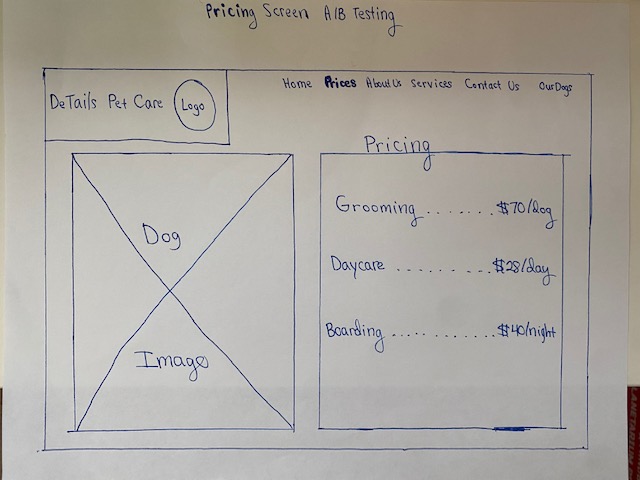 Pricing Screen A/B Testing
DeTails Pet Care Logo
Home Prices About Us Services Contact Us Our Dogs
Pricing
Dog
Image
Grooming ....... $70/dog
Daycare .......... $28/day
Boarding ........... $40/night